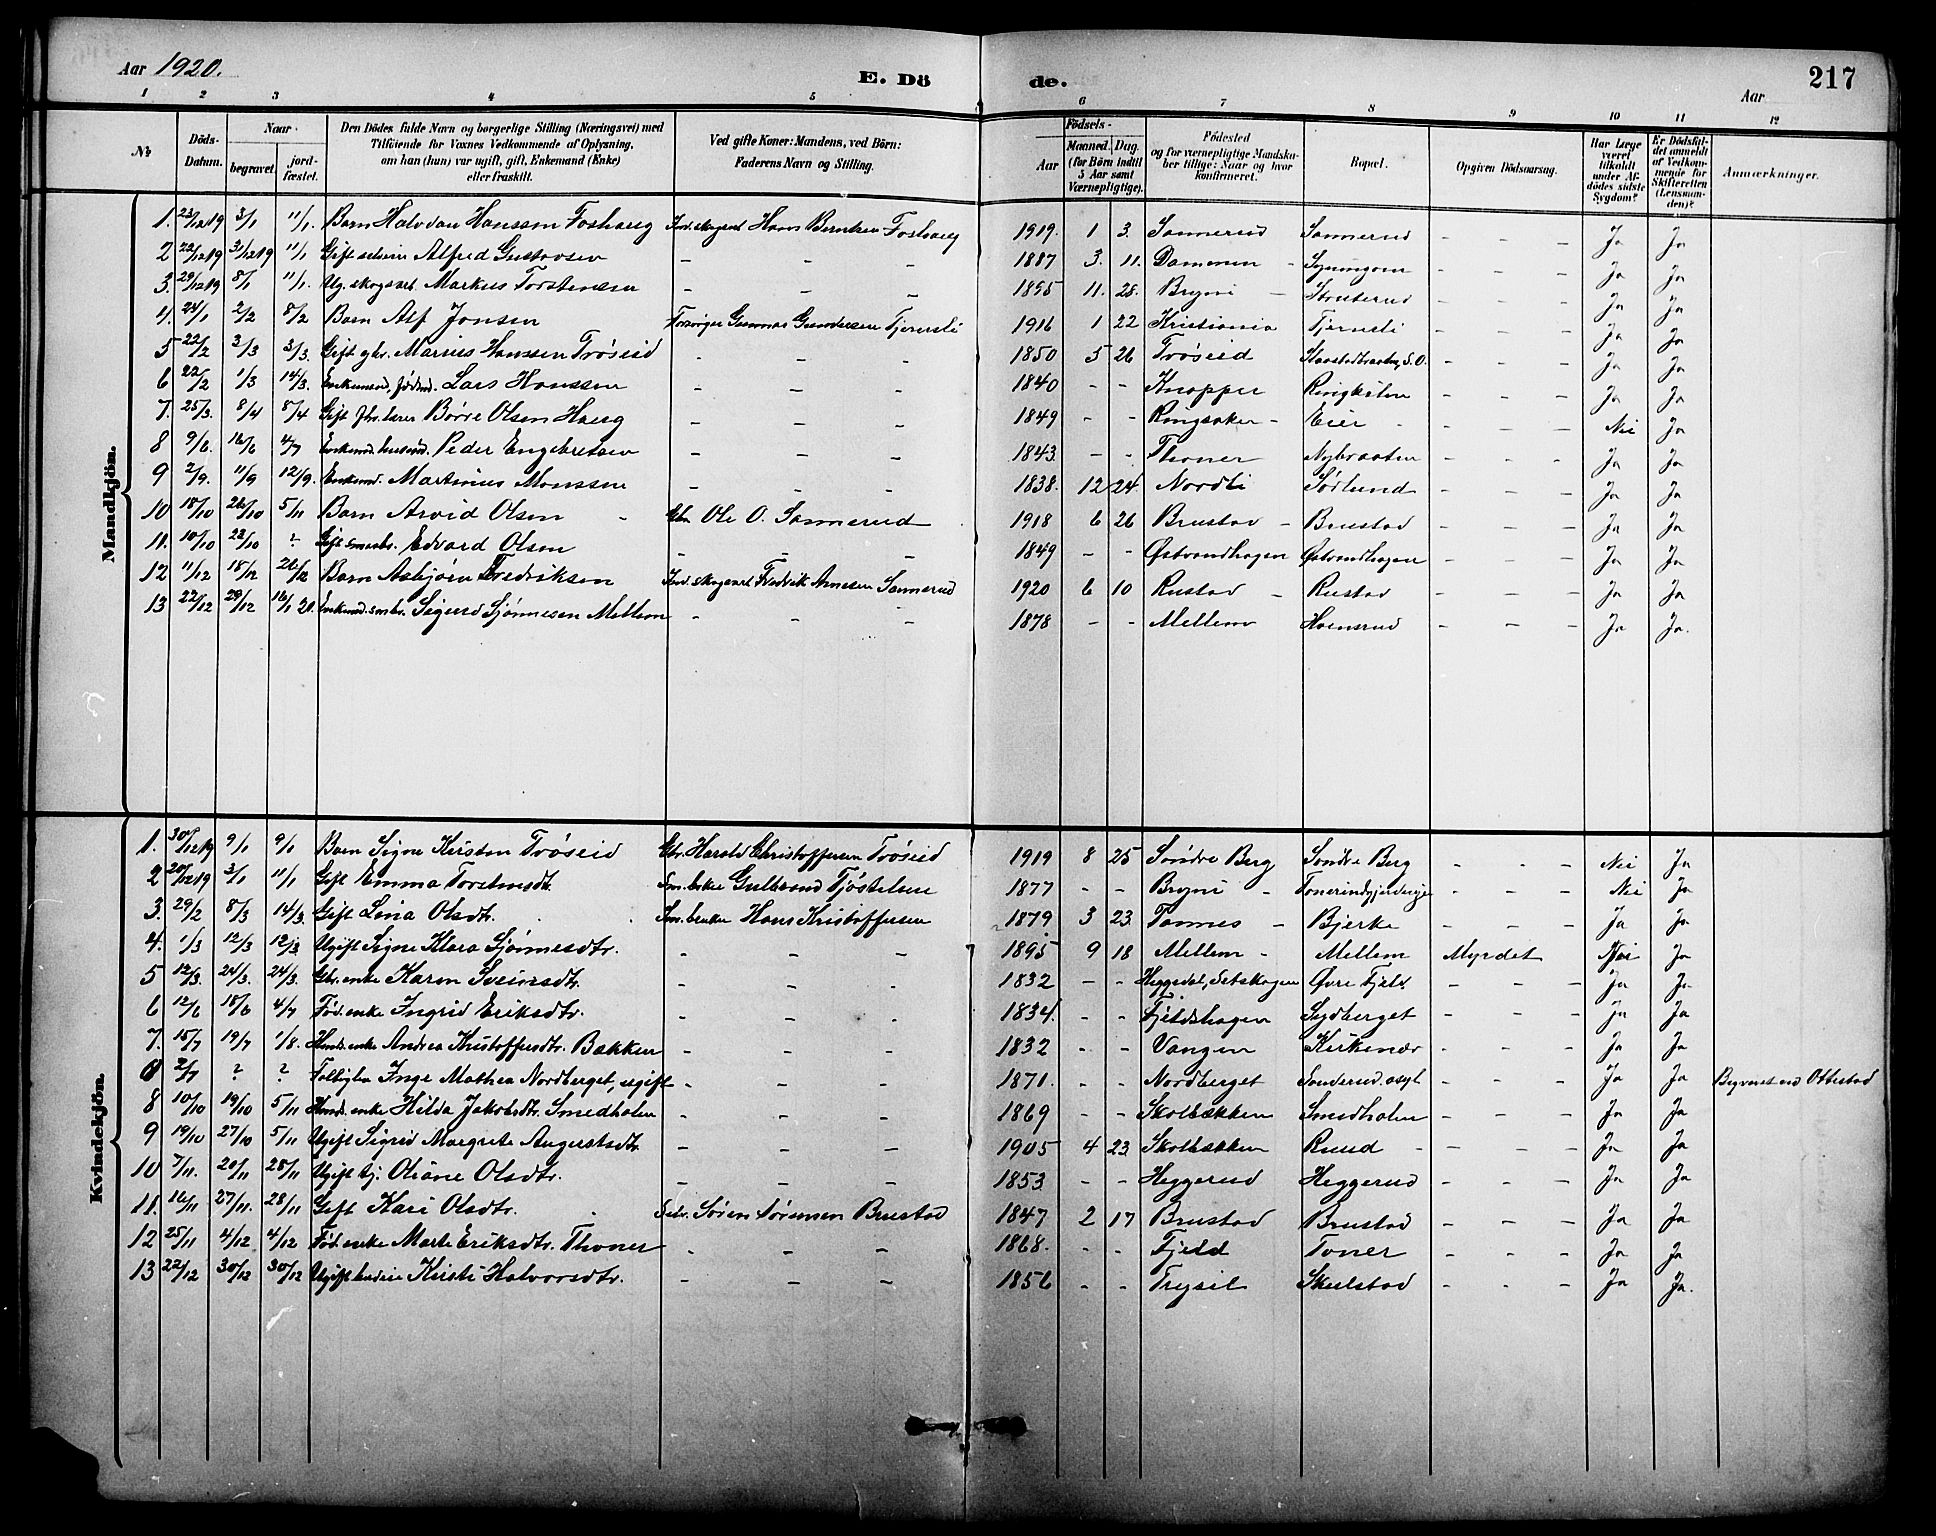 Aar 1920. E. Dö de. Aar 217
1 2 3 4 5 6 7 8 9 10 11 12
№ Döds-Datum. Naar begravet. jordfæstet. Den Dödes fulde Navn og borgerlige Stilling (Næringsvei) med Tilföiende for Voxnes Vedkommende af Oplysning, om han (hun) var ugift, gift, Enkemand (Enke) eller fraskilt. Ved gifte Koner: Mandens, ved Börn: Faderens Navn og Stilling. Födsels- Aar Maaned. Dag. (for Börn indtil 5 Aar samt Værnepligtige). Födested og for værnepligtige Mandskaber tillige: Naar og hvor konfirmeret. Bopæl. Opgiven Dödsaarsag. Har Læge været tilkaldt under Afdödes sidste Sygdom? Er Dödsfaldet anmeldt af Vedkommende for Skifteretten (Lensmanden)? Anmærkninger.
Mandkjön.
1. 23/12 19 3/1 11/1. Barn Halvdan Hanssen Foshaug Ind. skogsarb. Hans Berntsen Foshaug 1919. 1 3. Sannerud Sannerud - - - Ja Ja
2 22/12 19 31/12 19 11/1 Gift Alfred Gustavsen - - - 1887 3. 11. Dammen - - - - Ja Ja
3. 29/12 19 8/1 11/1. Ug. skogsarb. Markus Torstensen - - - 1895 11. 28. Bryni - Struterud - - - Ja Ja
4. 24/1 2/2 8/2 Barn Alf Jonsen Forsörger Gunnar Gundersen Tjernsli 1916 1 22 Kristiania Tjernsli - - - Ja Ja
5 22/2 3/3 3/3. Gift gbr. Marius Hanssen Tröseid - - - 1850 5 26 Tröseid S.O. - - - Ja Ja
6 22/2 1/3 14/3. Enkemand, Lars Hanssen - - - 1840 - - Knapper - - - Ja Ja
7. 25/3. 8/4 8/4 Gift fhv. lærer Börre Olsen Haug - - - 1849 - - Ringsaker - Eier - - - - Nei Ja
8 9/6. 16/6 4/7 Enkemd. husmd. Peder Engebretsen - - - 1843. - - Thoner Nybraaten - - - Ja Ja
9 2/9. 11/9 12/9. Enkemd. Martinius Monssen - - - 1838. 12 24. Nordli Sörlund - - - Ja Ja
10 18/10 26/10 5/11 Barn Arvid Olsen - Gbr. Ole O. Sannerud 1918 6 26 Brustad - Brustad - - - Ja Ja
11. 10/10 22/10 ? Gift smaabr. Edvard Olsen - - - 1849 - - Östvandhagen Östvandhagen - - - Ja Ja
12 11/12 18/12 26/12 Barn Asbjörn Fredriksen Ind. skogsarb. Fredrik Arnesen Sannerud 1920 6 10 Rustad - Rustad - - - Ja Ja
13 22/12 29/12 16/1 21. Enkemd. smbr. Sigurd Sjönnesen Mellem - - - 1878 - - Mellem Hoensrud - - - Ja Ja.
Kvindekjön.
1. 30/12 19 9/1 9/1 Barn Signe Kirsten Tröseid Gbr. Harald Christoffersen Tröseid 1919 8 25 Söndre Berg Söndre Berg - - - Nei Ja
2 20/12 19 3/1 11/1 Gift Emma Torstensdt. Smbruker Gulbrand Tjöstelsen 1877 - - Bryni - - - - Nei Ja
3. 29/2 8/3 14/3. Gift Lina Olsdtr. Smbruker Hans Kristoffersen 1879 3 23. Tannes - Bjerke - - - Ja Ja
4. 1/3 12/3 12/3 Ugift Signe Klara Sjönnesdtr. - - - 1895 9 18 Mellem - Mellem Myrdet Nei Ja
5 12/3. 24/3. 24/3. Gbr. enke Karen Sveinsdtr. - - - 1832 - - Heggedal, Setskogen Övre Fjeld - - - Ja Ja
6 12/6 18/6 4/7 Föd. enke Ingrid Eriksdtr. - - - 1834. - - Fjeldshagen Sydberget - - - Ja Ja
7. 15/7 19/7 1/8. Husmds. enke Andrea Kristoffersdtr. Bakken - - - 1832 - - Vangen Kirkenær - - - Ja Ja
2/7 ? ? Inge Mathea Nordberget, ugift - - - 1871. - - Nordberget Sönderud. asyl - - - Ja Ja Begravet ved Ottestad
8 10/10 19/10 5/11 Husmds. enke Hilda Jakobsdtr. Smedholen - - - 1869 - - Skolbækken Smedholen - - - Ja Ja
9 19/10 27/10 5/11 Ugift Sigrid Margrete Augerstsdtr. - - - 1905 4 23. Skolbækken Ruud - - - - Ja Ja
10 7/11. 20/11 28/11 Ugift tj. Oliane Olsdtr. - - - 1853 - - Heggerud Heggerud - - - Ja Ja
11. 16/11 27/11. 28/11 Gift Kari Olsdtr. Sören Sörensen Brustad 1847 2 17 Brustad Brustad - - - Ja Ja
12 25/11 4/12 4/12 Föd. enke Marte Eriksdtr. Thoner - - - 1868. - - Fjeld Toner - - - Ja Ja
13 22/12 30/12 30/12 Ugift Kirsti Halvorsdtr. - - - 1856 - - Trysil Skulstad - - - Ja Ja.